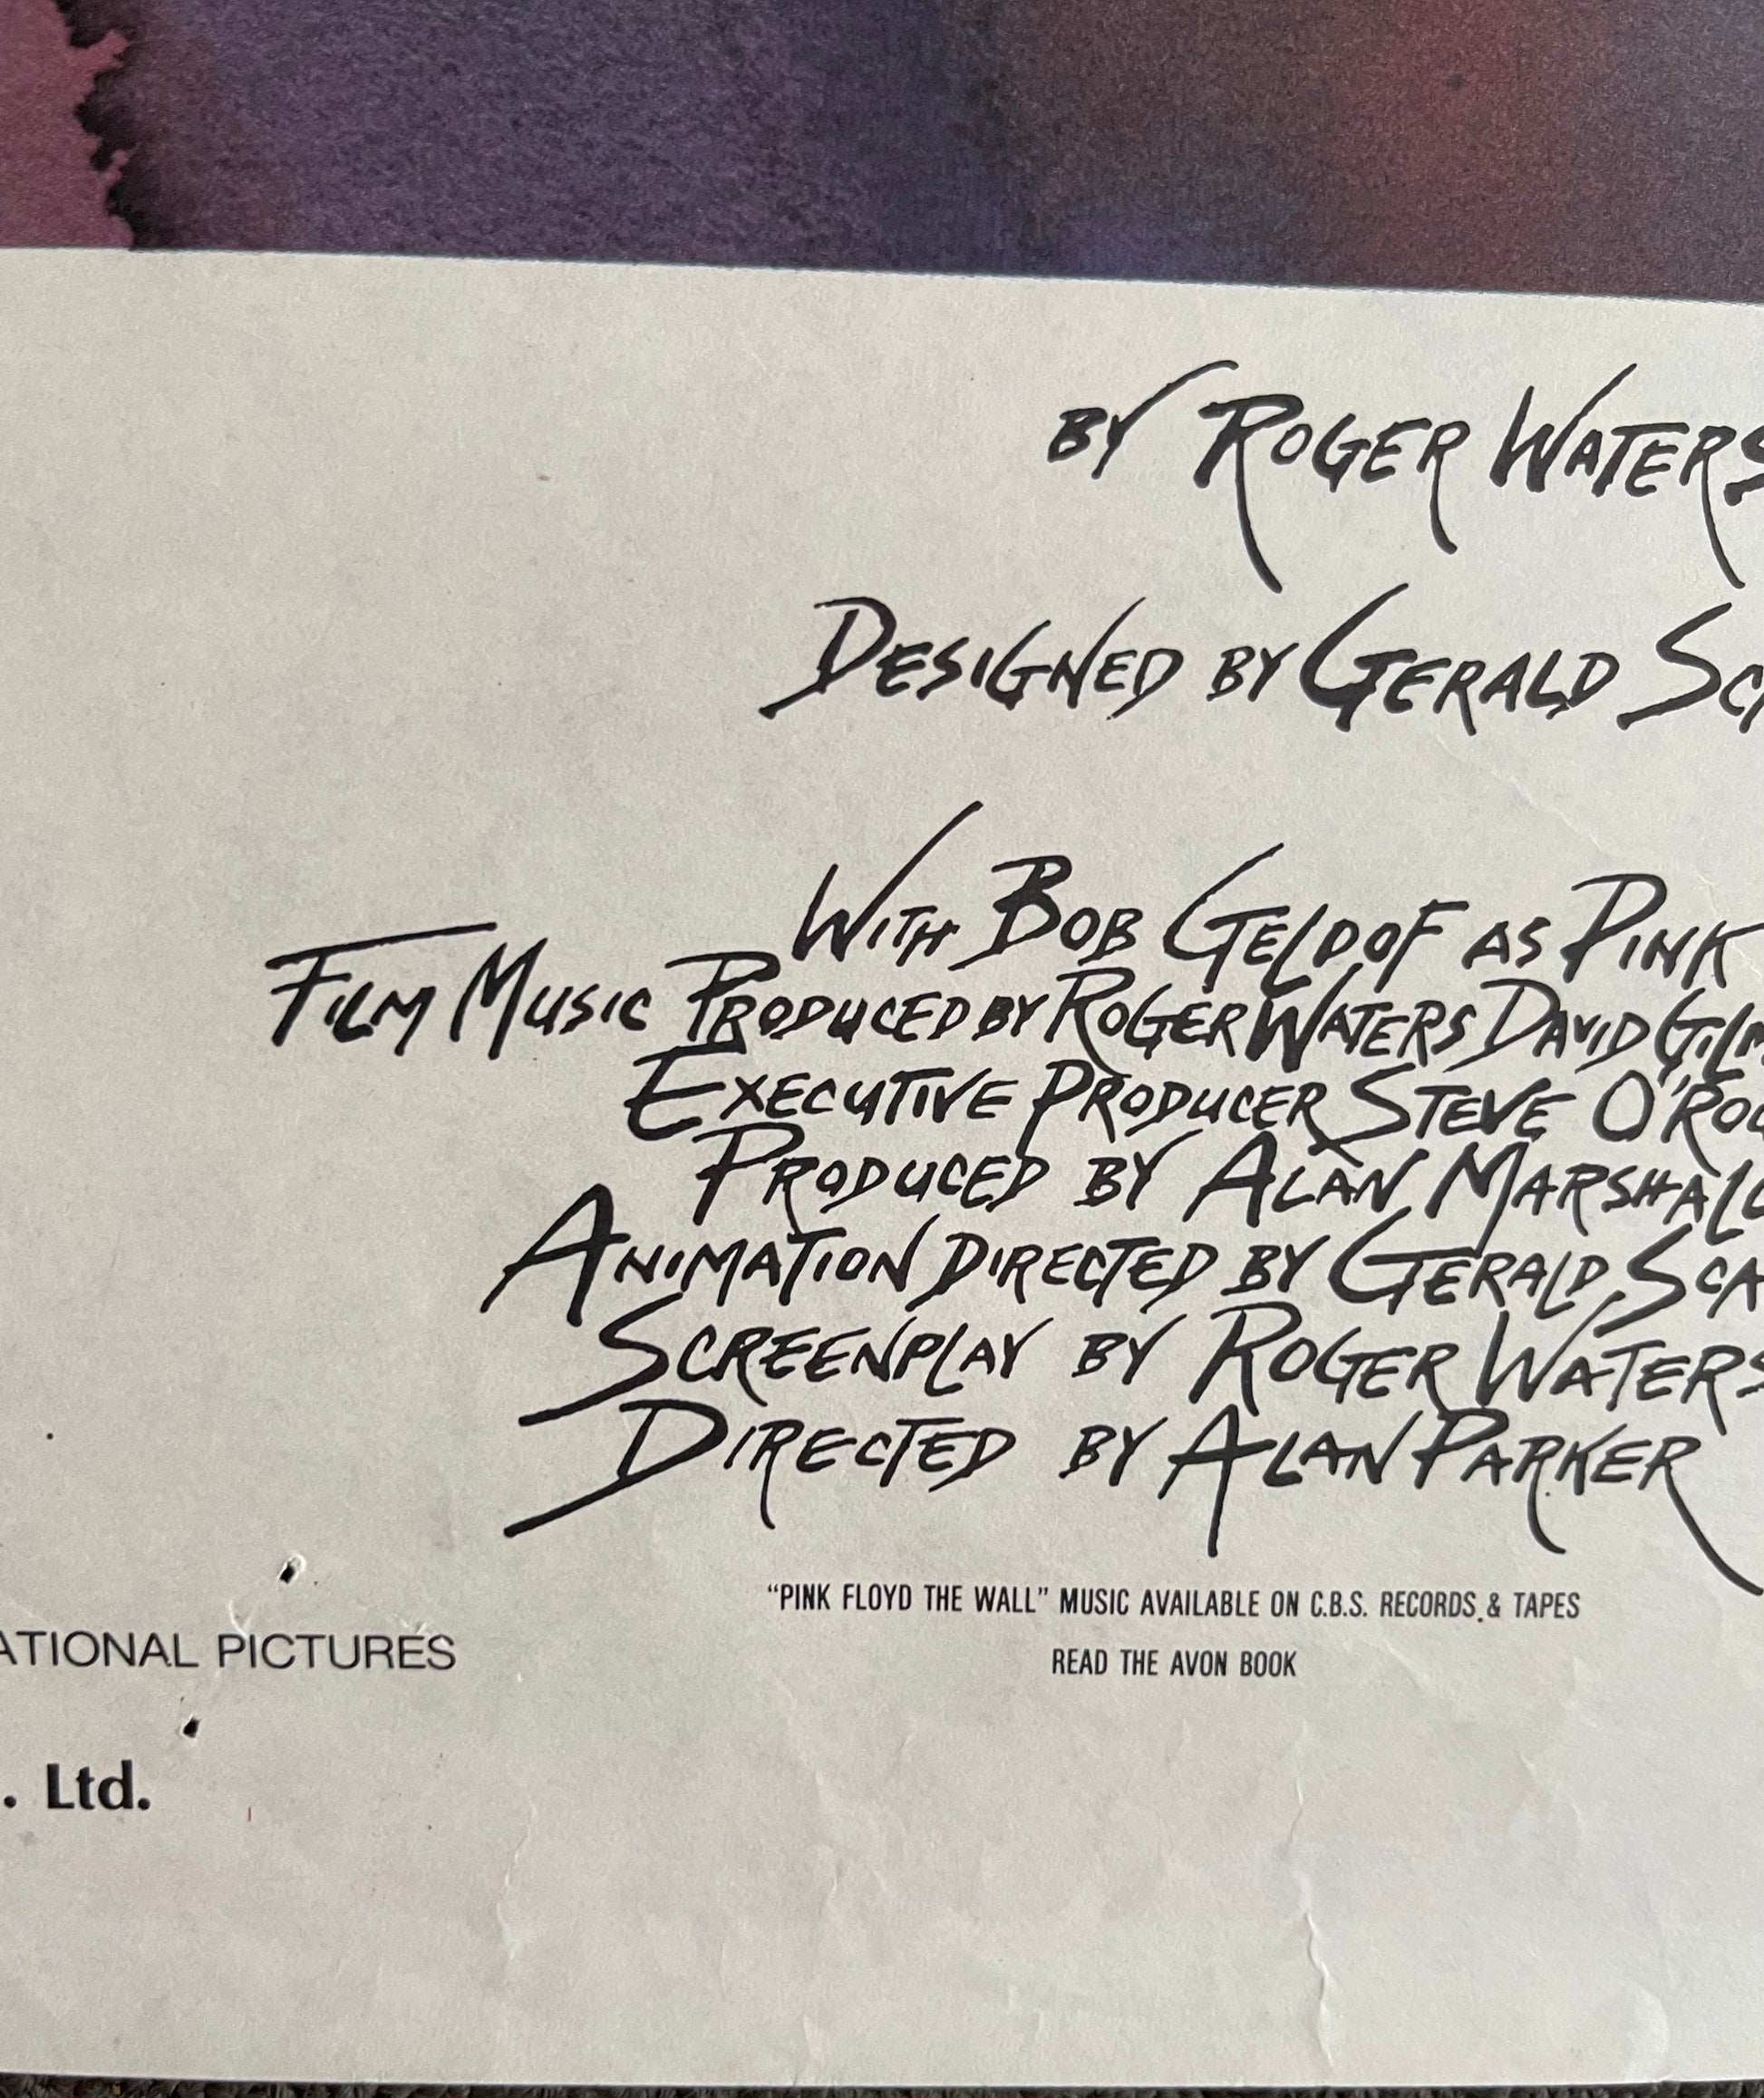 BY ROGER WATERS
DESIGNED BY GERALD SC
WITH BOB GELDOF AS PINK
FILM MUSIC PRODUCED BY ROGER WATERS DAVID GILM
EXECUTIVE PRODUCER STEVE O'ROU
PRODUCED BY ALAN MARSHALL
ANIMATION DIRECTED BY GERALD SCA
SCREENPLAY BY ROGER WATERS
DIRECTED BY ALAN PARKER
"PINK FLOYD THE WALL" MUSIC AVAILABLE ON C.B.S. RECORDS & TAPES
READ THE AVON BOOK
ATIONAL PICTURES
. Ltd.